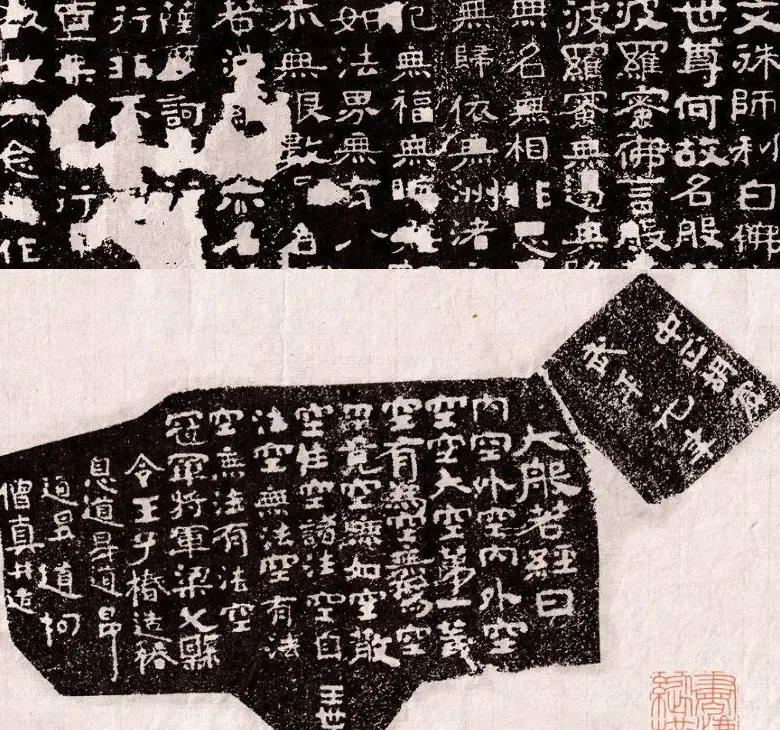 文殊師利白佛
世尊何故名般
波羅蜜佛言般
波羅蜜無邊無
無名無相非思
無歸依無洲渚
犯無福無晦無
如法界無有
亦無限數
若
薩摩訶
行非不
行
念
作
中正胡賓
武平元年
大般若經曰
內空外空內外空
空空大空第一義
空有為空無為空
畢竟空無始空散
空性空諸法空自
法空無法空有法
空無法有法空
冠軍將軍梁父縣
令王子椿造椿
息道昇道昂
道昱道恂
僧真共造
王世